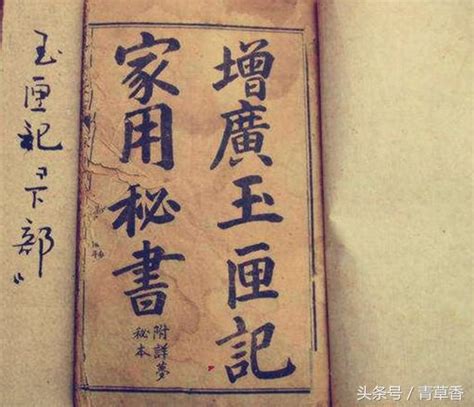 增廣玉匣記
家用秘書
附詳夢
秘本
玉匣記
下部
头条号/青草香